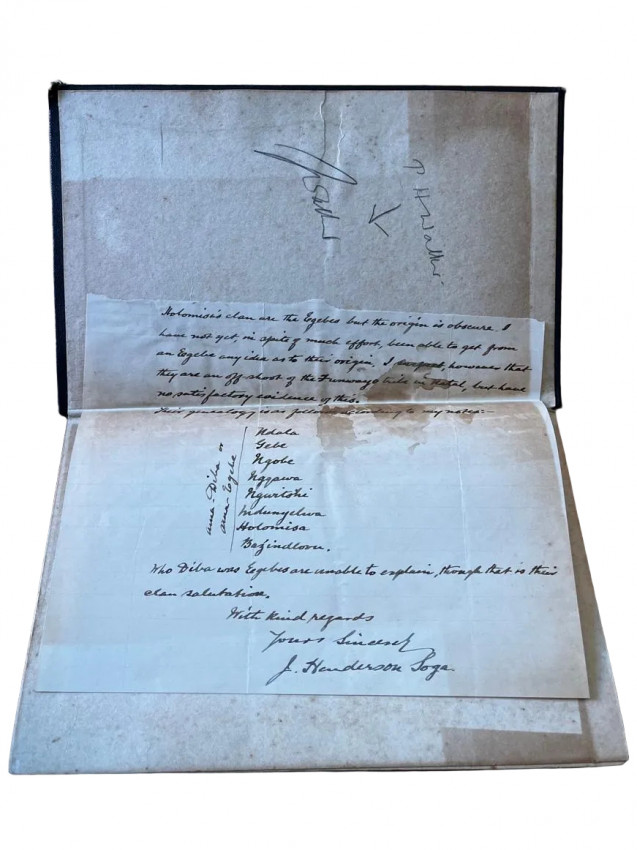 P H Walker
Holomisi's clan are the Egebes but the origin is obscure. I
have not yet, in spite of much effort, been able to get from
an Egebe any idea as to their origin. I suspect, however that
they are an off-shoot of the Funwayo tribe in Natal, but have
no satisfactory evidence of this.
Their genealogy is as follows according to my notes:-
ama-Diba or
ama-Egebe
Ndala
Gebe
Ngobe
Ngqawa
Ngwitshi
Mdunyelwa
Holomisa
Bazindlovu.
Who Diba was Egebes are unable to explain, though that is their
clan salutation.
With kind regards
Yours Sincerely
J. Henderson Soga